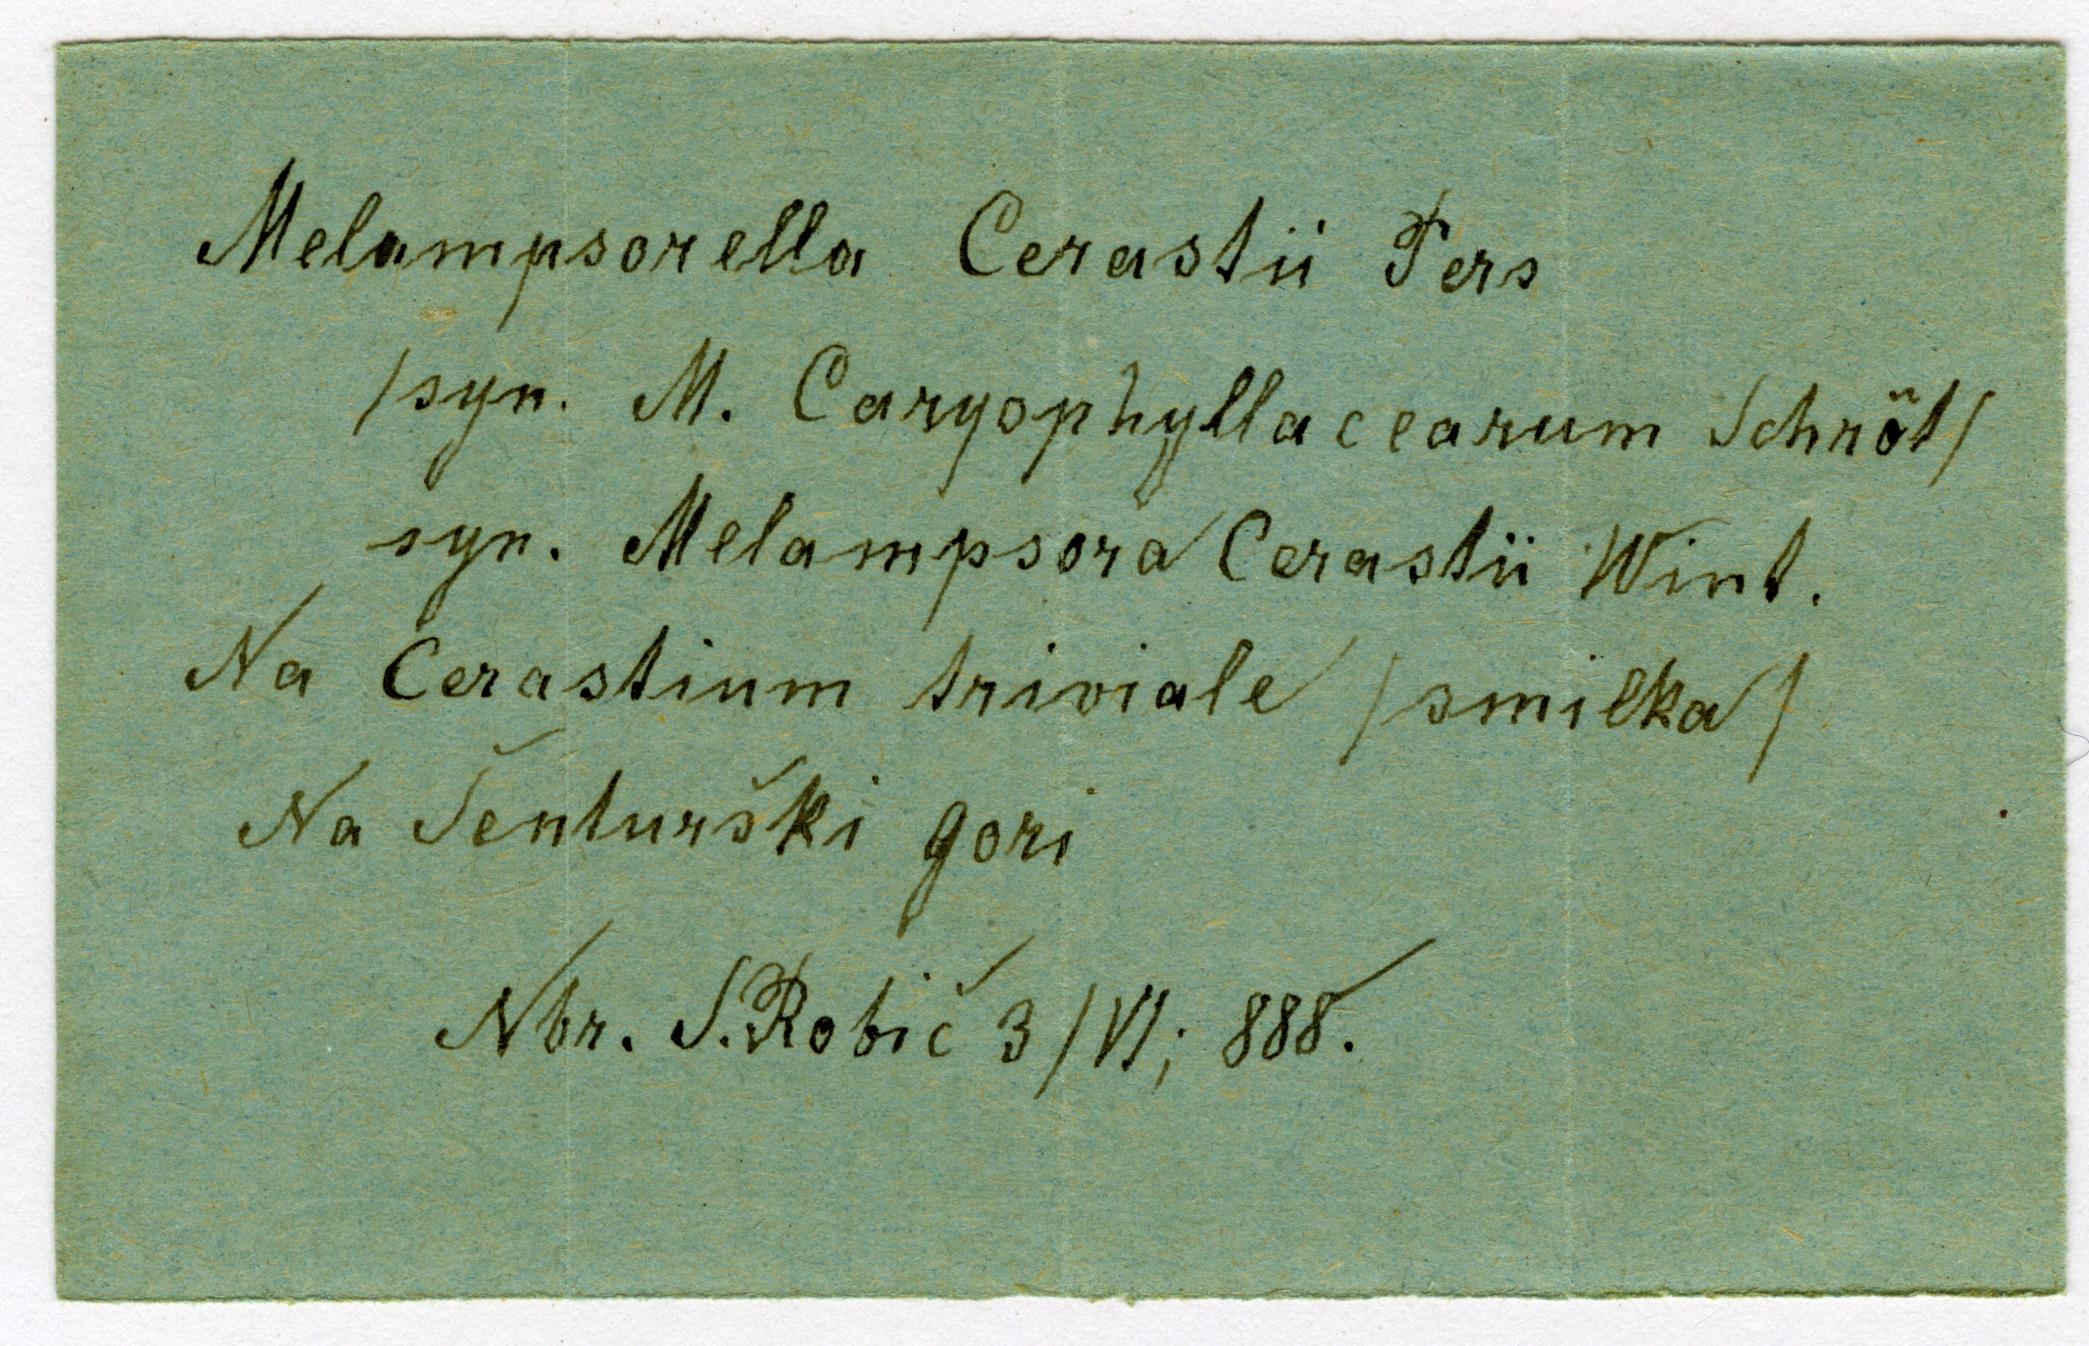 Melampsorella Cerastii Pers
/syn. M. Caryophyllacearum Schröt/
syn. Melampsora Cerastii Wint.
Na Cerastium triviale /smilka/
Na Šenturški gori
Nbr. S. Robič 3/VI; 888.